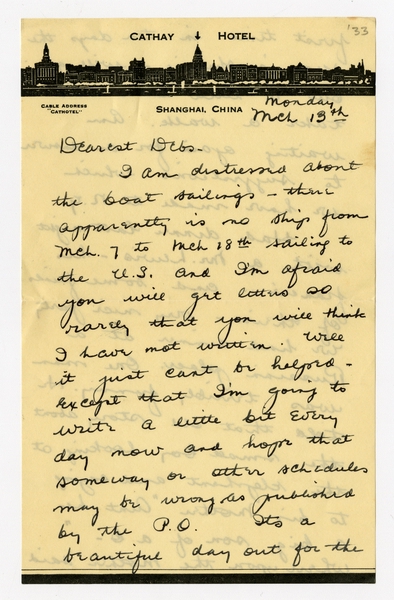 '33
CATHAY HOTEL
CABLE ADDRESS
"CATHOTEL"
SHANGHAI, CHINA
Monday
Mch 13th
Dearest Debs-
I am distressed about
the boat sailings - there
apparently is no ship from
Mch. 7 to Mch 18th sailing to
the U.S. and I'm afraid
you will get letters so
rarely that you will think
I have not written. Well
it just cant be helped -
except that I'm going to
write a little bit every
day now and hope that
someway or other schedules
may be wrong as published
by the P.O. Its a
beautiful day out for the